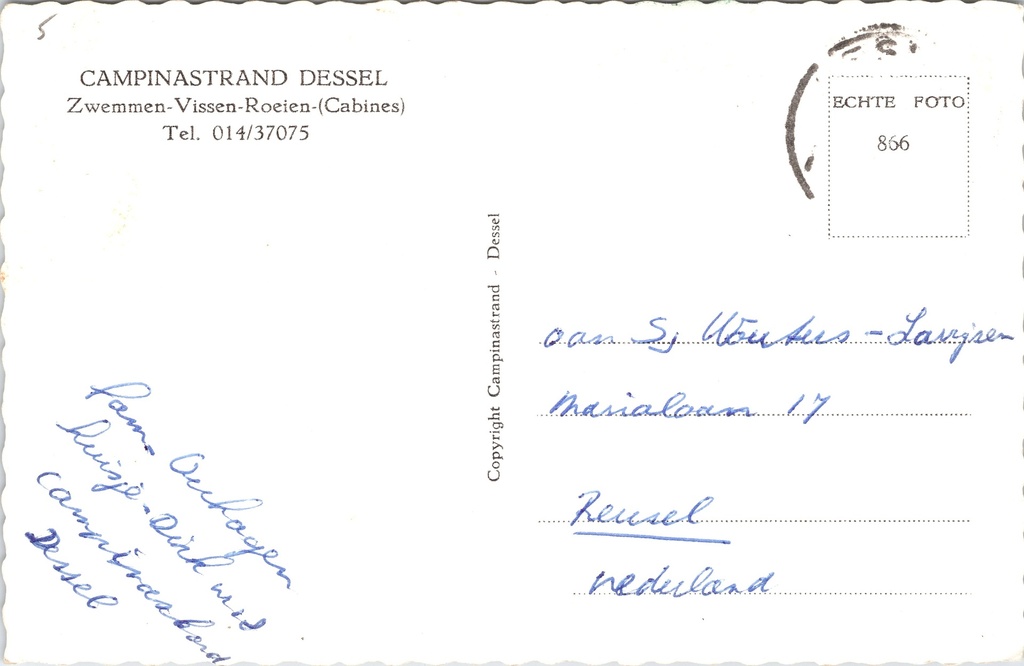 5
CAMPINASTRAND DESSEL
Zwemmen-Vissen-Roeien-(Cabines)
Tel. 014/37075
ECHTE FOTO
866
Copyright Campinastrand - Dessel
aan Sj Wouters-Lavrijsen
Marialaan 17
Reusel
Nederland
Fam.
huisje
Campinastrand
Dessel